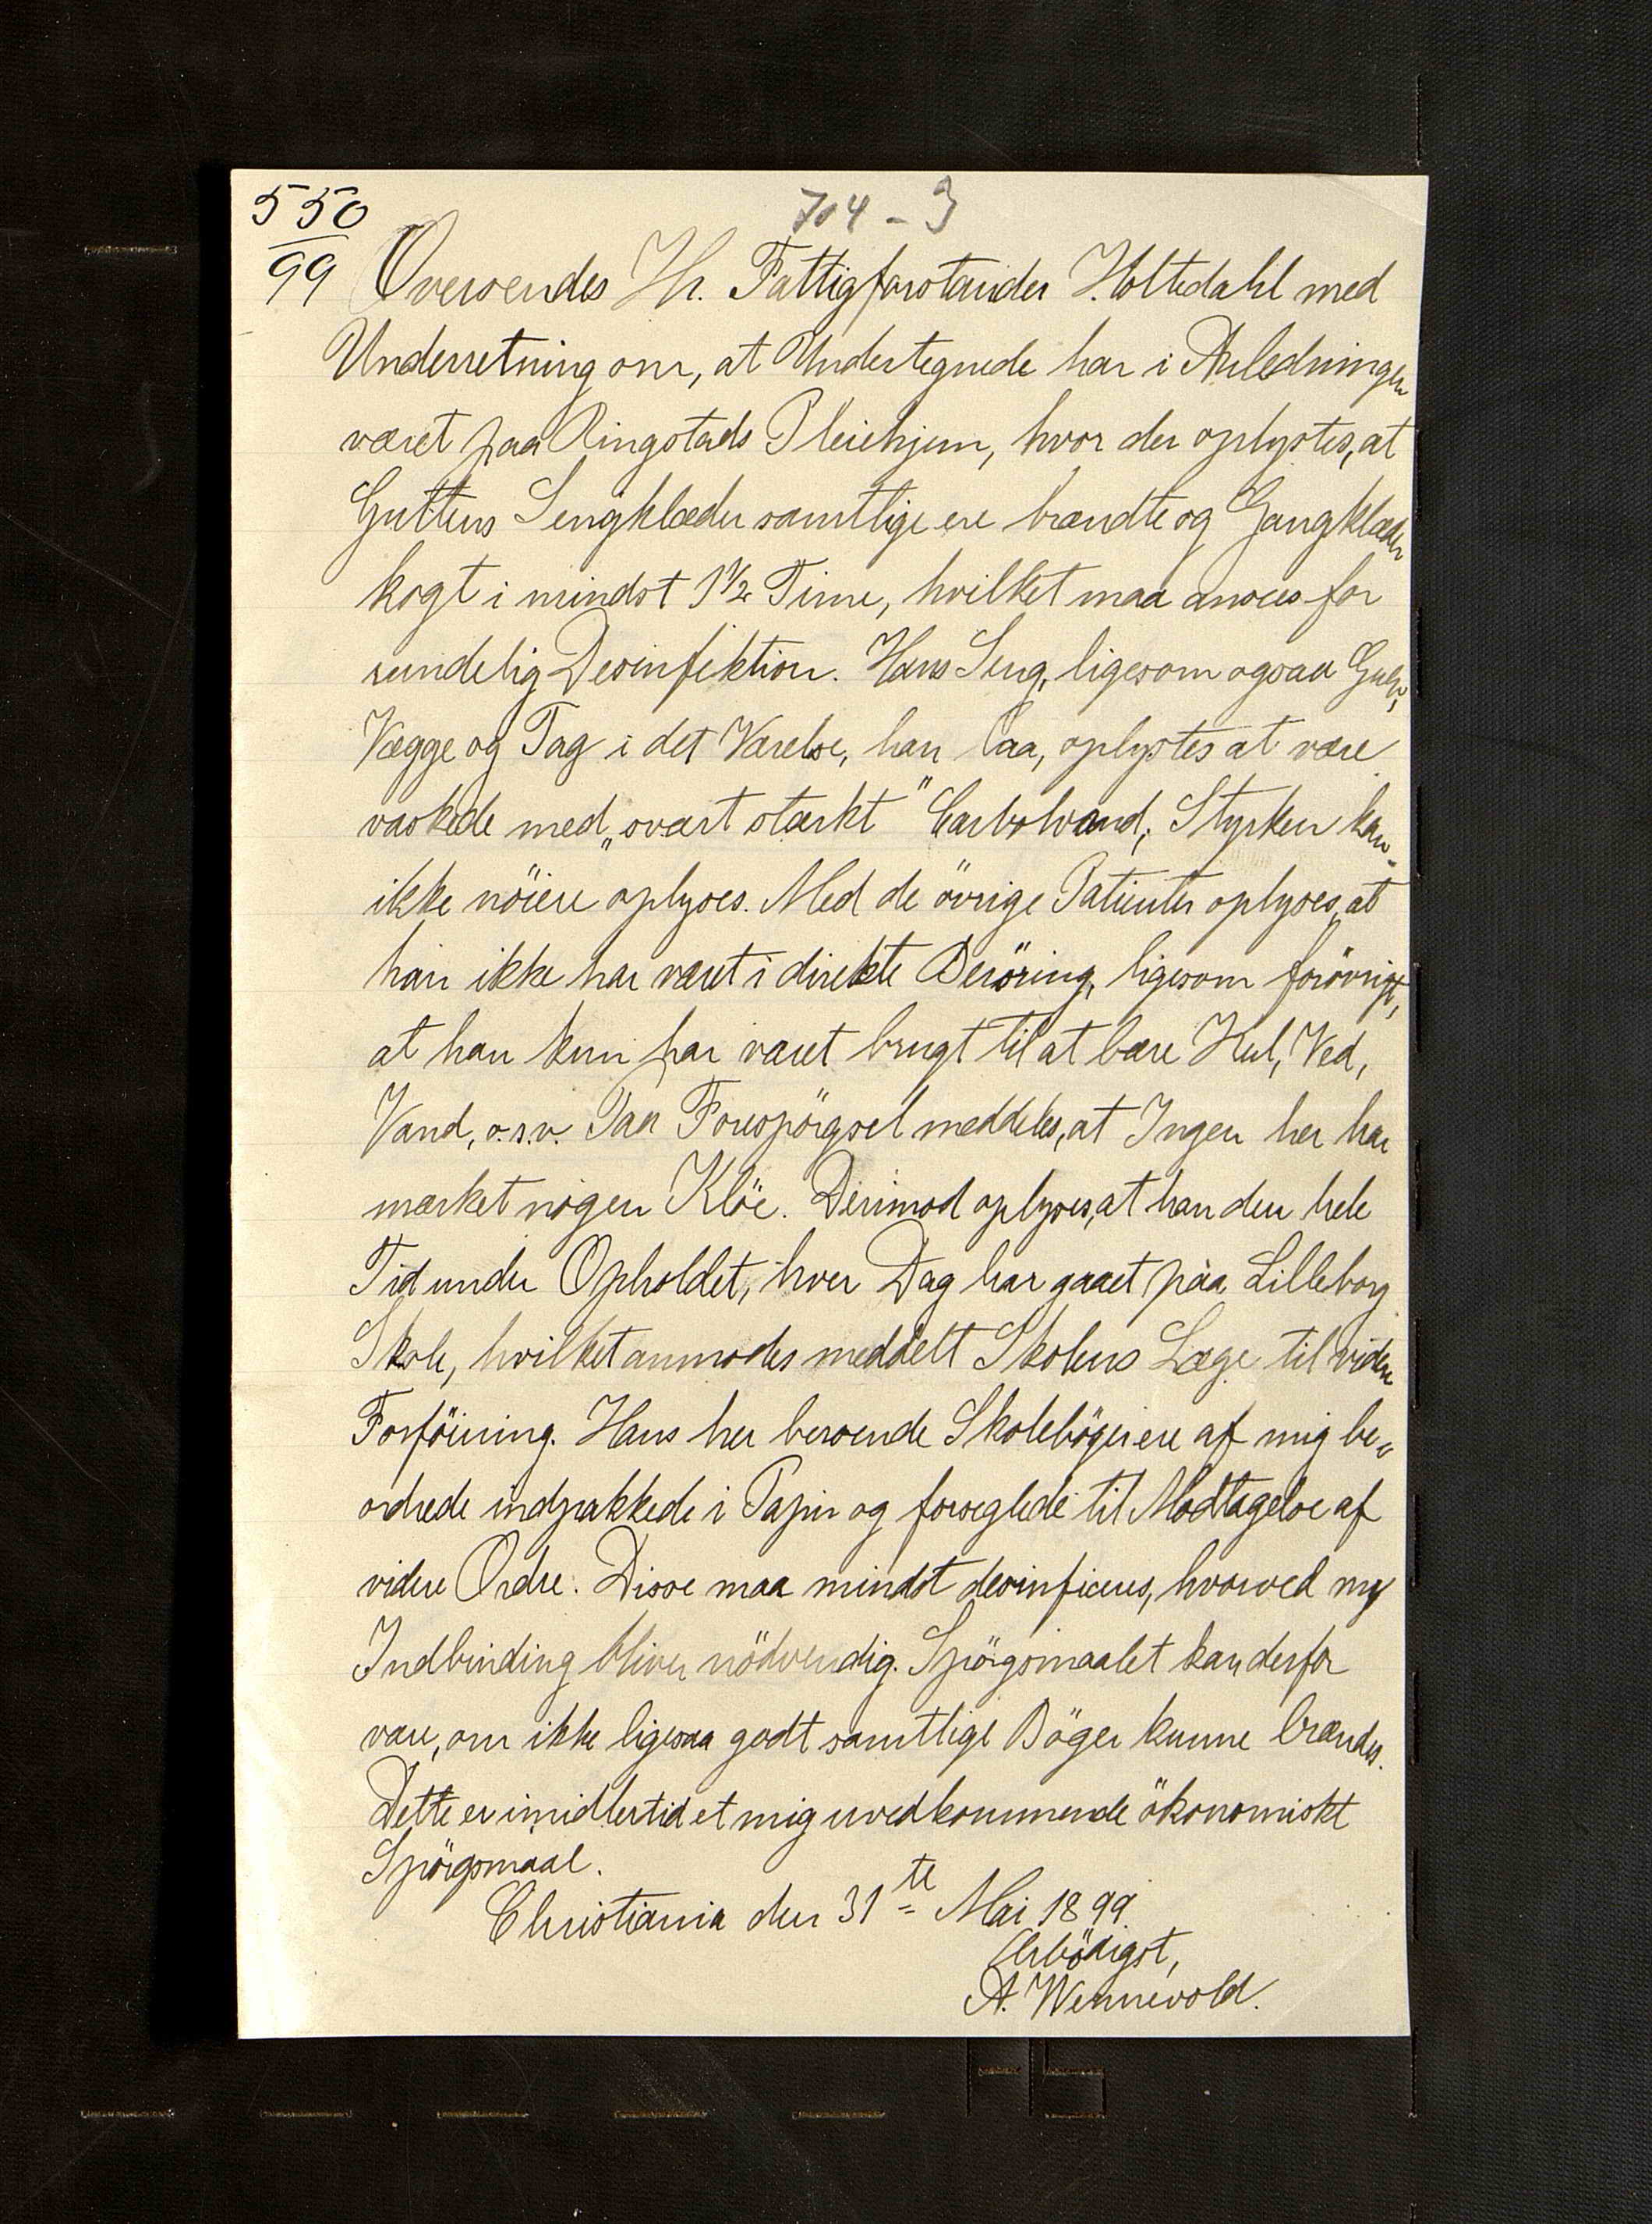 550
99
704 - 3
Oversendes Hr. Fattigforstander Holtedahl med
Underretning om, at Undertegnede har i Anledningen
været paa Ringstads Pleiehjem, hvor der oplystes, at
Guttens Sengklæder samtlige ere brændte og Gangklæder
kogt i mindst 1½ Time, hvilket maa ansees for
rundelig Desinfektion. Hans Seng, ligesom ogsaa Gulv,
Vægge og Tag i det Værelse, han laa, oplystes at være
vaskede med „svært stærkt" Carbolvand; Styrken kan
ikke nöiere oplyses. Med de övrige Patienter oplyses, at
han ikke har været i direkte Beröring, ligesom forövrigt,
at han kun har været brugt til at bære Kul, Ved,
Vand, o.s.v. Paa Forespörgsel meddeles, at Ingen her har
mærket nogen Klöe. Derimod oplyses, at han den hele
Tid under Opholdet, hver Dag har gaaet paa Lilleborg
Skole, hvilket anmodes meddelt Skolens Læge til videre
Forföining. Hans her beroende Skoleböger ere af mig be-
ordrede indpakkede i Papir og forseglede til Modtagelse af
videre Ordre. Disse maa mindst desinficeres, hvorved ny
Indbinding bliver nödvendig. Spörgsmaalet kan derfor
være, om ikke ligesaa godt samtlige Böger kunne brændes.
Dette er imidlertid et mig uvedkommende ökonomiskt
Spörgsmaal.
Christiania den 31te Mai 1899.
Ærbödigst,
A. Wennevold.